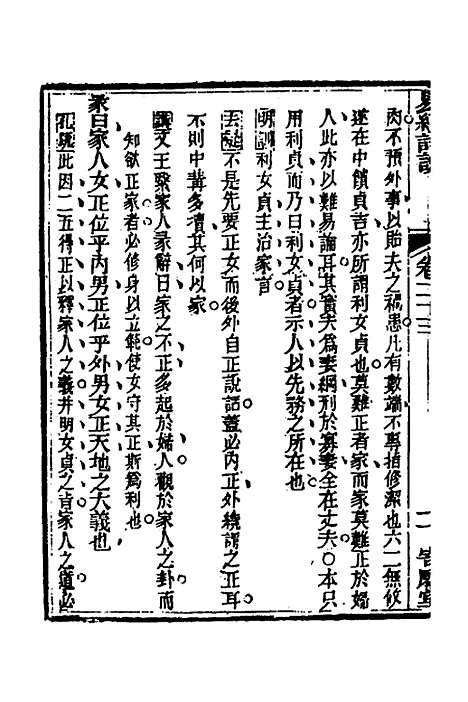 易經詳說 卷二十三 二
内不預外事以貽夫之禍患凡有數端不專指修潔也六二無攸
遂在中饋貞吉亦所謂利女貞也莫難正者家而家莫難正於婦
人此亦以難易論耳其實夫爲妻綱刑於寡妻全在丈夫○本只
用利貞而乃曰利女貞者示人以先務之所在也
利女貞主治家言
不是先要正女而後外自正說話蓋必内正外纔謂之正耳
不則中冓多瀆其何以家
講文王繫家人彖辭曰家之不正多起於婦人觀於家人之卦而
知欲正家者必修身以立範使女守其正斯爲利也
彖曰家人女正位乎内男正位乎外男女正天地之大義也
孔疏此因二五得正以釋家人之義并明女貞之旨家人之道必